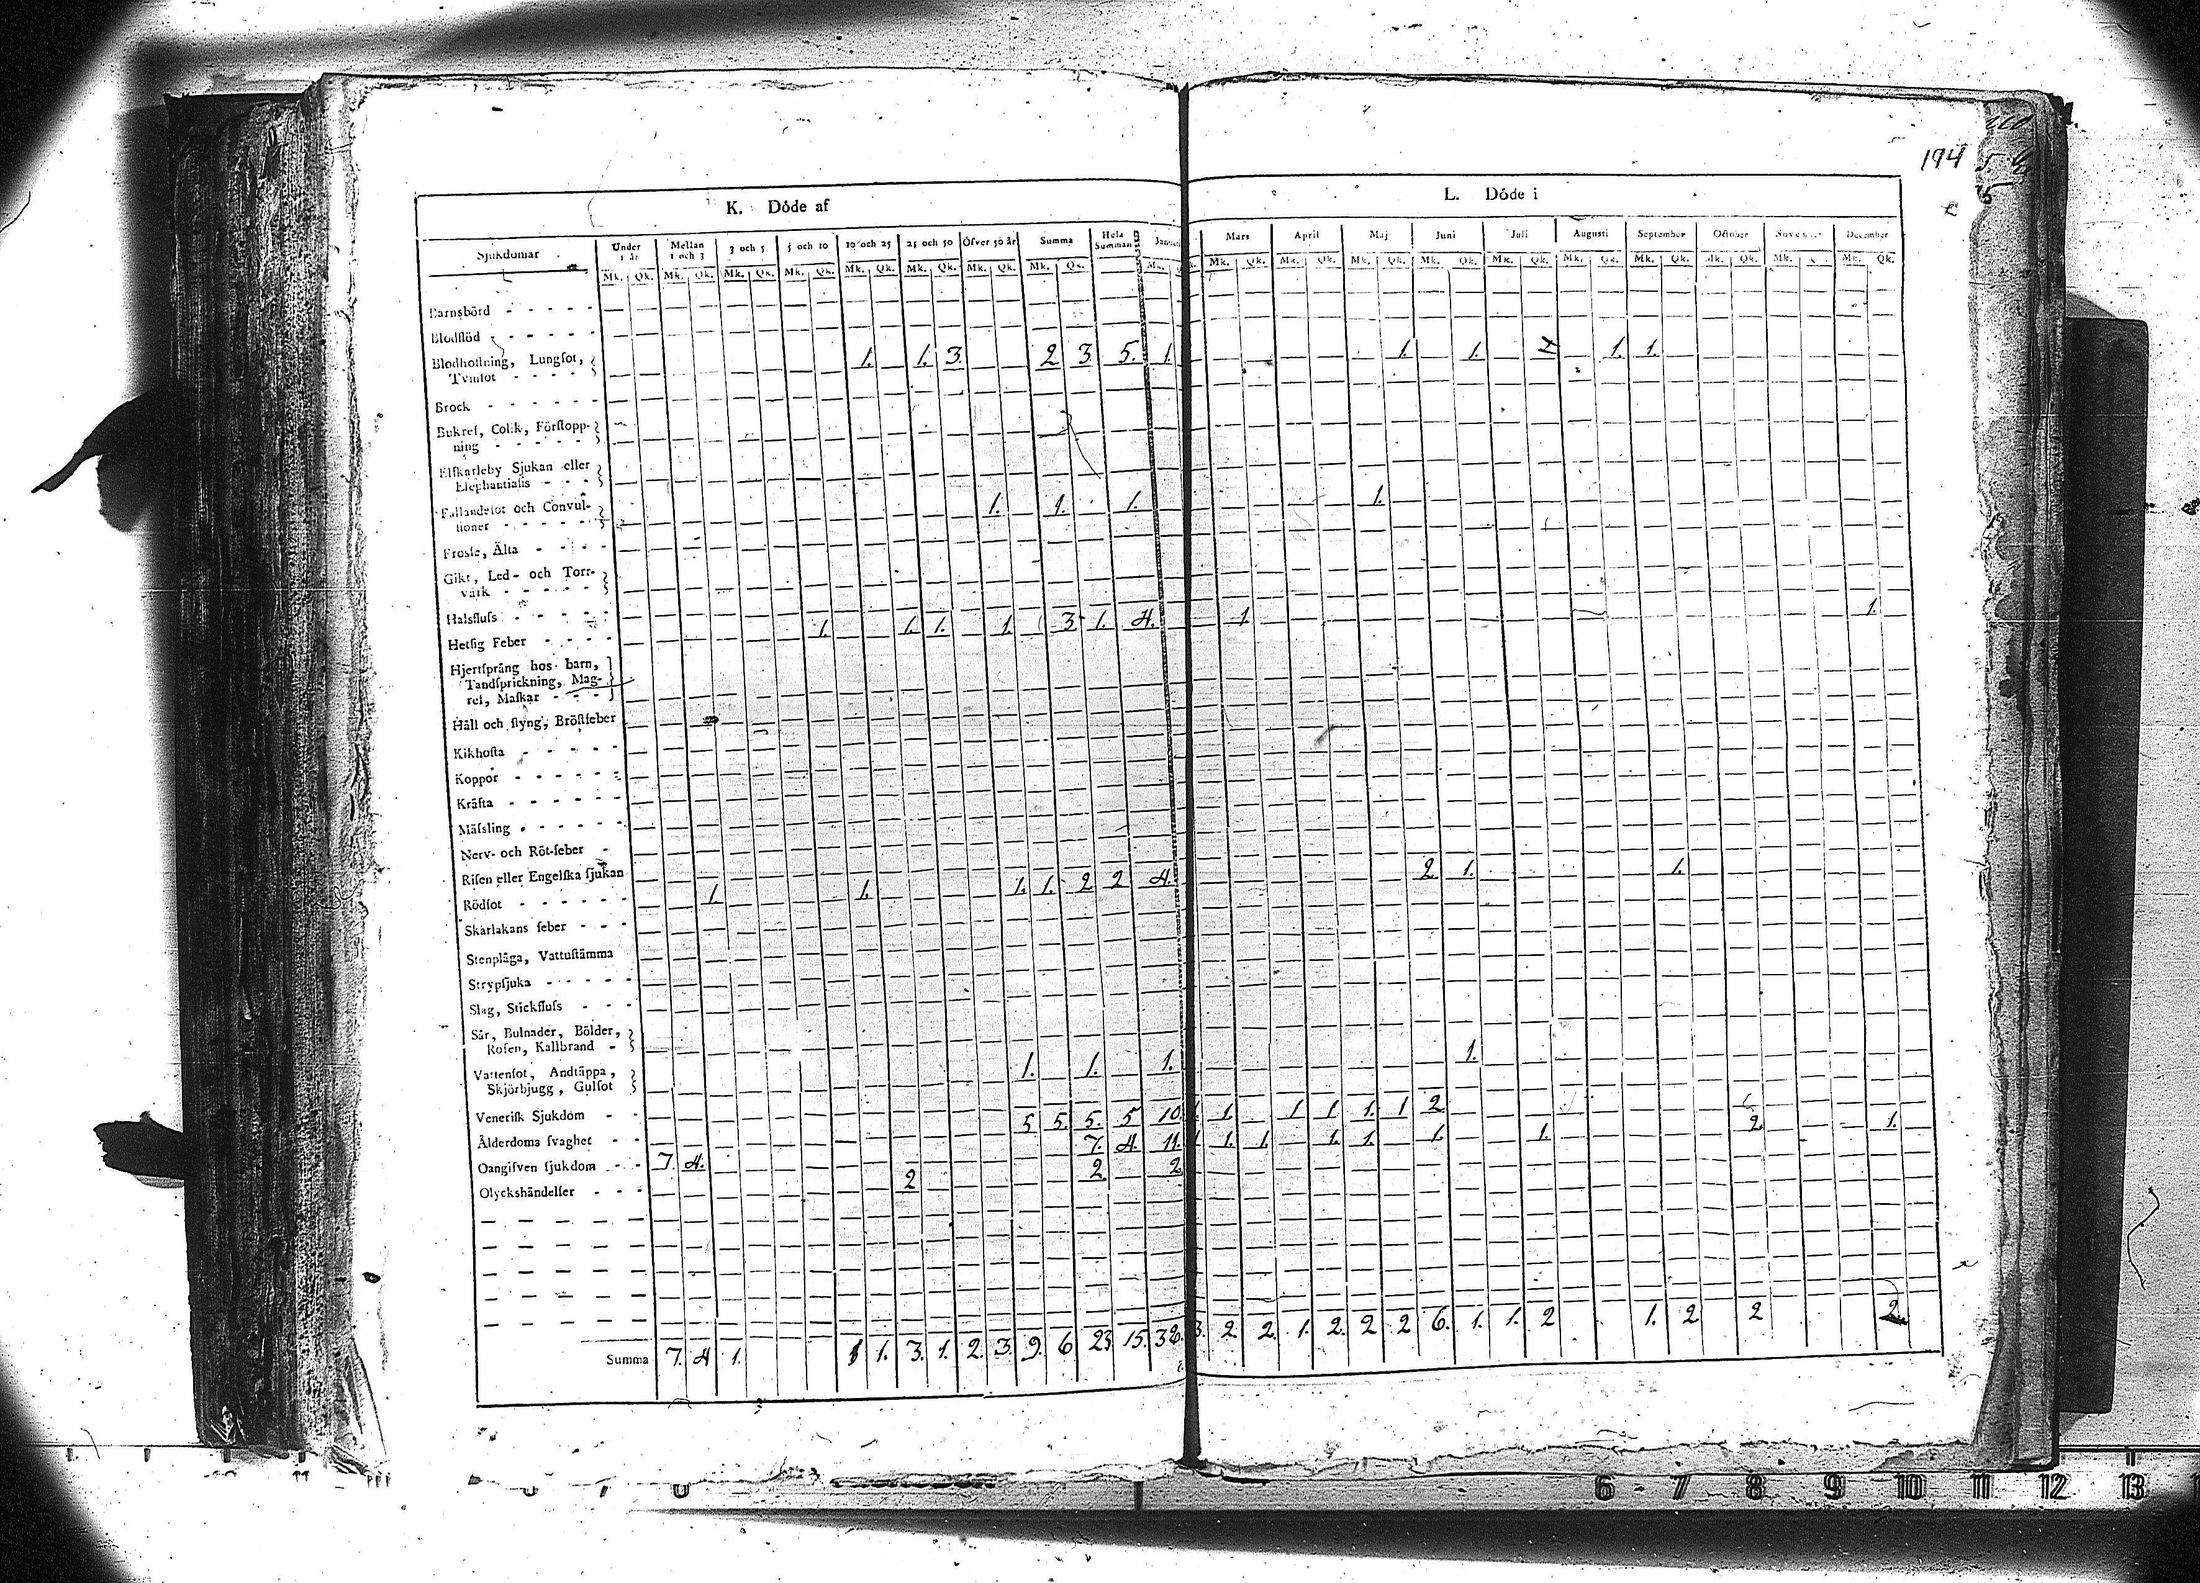 194
K. Döde af
L. Döde i
Sjukdomar Under 1 år Mellan 1 och 3 3 och 5 5 och 10 10 och 25 25 och 50 Öfver 50 år Summa Hela Summan Mars April Maj Juni Juli Augusti September October November December
Mk. Qk. Mk. Qk. Mk. Qk. Mk. Qk. Mk. Qk. Mk. Qk. Mk. Qk. Mk. Qk. Mk. Qk. Mk. Qk. Mk. Qk. Mk. Qk. Mk. Qk. Mk. Qk. Mk. Qk. Mk. Qk. Mk. Mk. Qk.
Barnsbörd
Blodflöd
Blodhostning, Lungsot, 1. 1. 3. 2 3. 5. 1. 1. 1. 1. 1.
Tvinsot
Brock
Bukref, Colik, Förstopp-
ning
Elfkarleby Sjukan eller
Elephantiasis
Fallandesot och Convul- 1. 1. 1. 1.
sioner
Frossa, Älta
Gikt, Led- och Torr-
värk
Halsfluss
Hetsig Feber 1. 1. 1. 1. 3 1. 4. 1 1.
Hjertsprång hos barn,
Tandsprickning, Mag-
ref, Maskar
Håll och styng, Bröstfeber
Kikhosta
Koppor
Kräfta
Mässling
Nerv- och Röt-feber
Risen eller Engelska sjukan
Rödsot 1 1. 1. 1. 2 2 4. 2 1. 1.
Skarlakans feber
Stenplåga, Vattustämma
Strypsjuka
Slag, Stickfluss
Sår, Bulnader, Bölder,
Rosen, Kallbrand
Vattensot, Andtäppa, 1. 1. 1. 1.
Skjörbjugg, Gulsot
Venerisk Sjukdom
Ålderdoms svaghet 5 5. 5. 5 10. 1. 1 1 1. 1 2 2 1.
Oangifven sjukdom 7. 4. 7. 4. 11. 1. 1. 1. 1. 1. 1.
Olyckshändelser 2 2 2
Summa 7. 4 1. 1 1. 3. 1. 2. 3. 9. 6. 23 15. 38. 3. 2. 2. 1. 2. 2 2 6. 1. 1. 2 1. 2 2 2
6 7 8 9 10 11 12 13